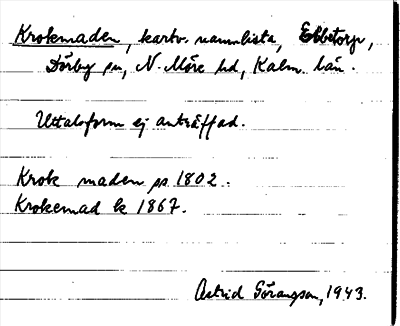 Krokmaden, kartv. namnlista, Ebbetorp,
Dörby sn, N. Möre hd, Kalm. län.
Uttalsform ej anträffad.
Krok maden ps 1802.
Krokemad lk 1867.
Astrid Göransson, 1943.